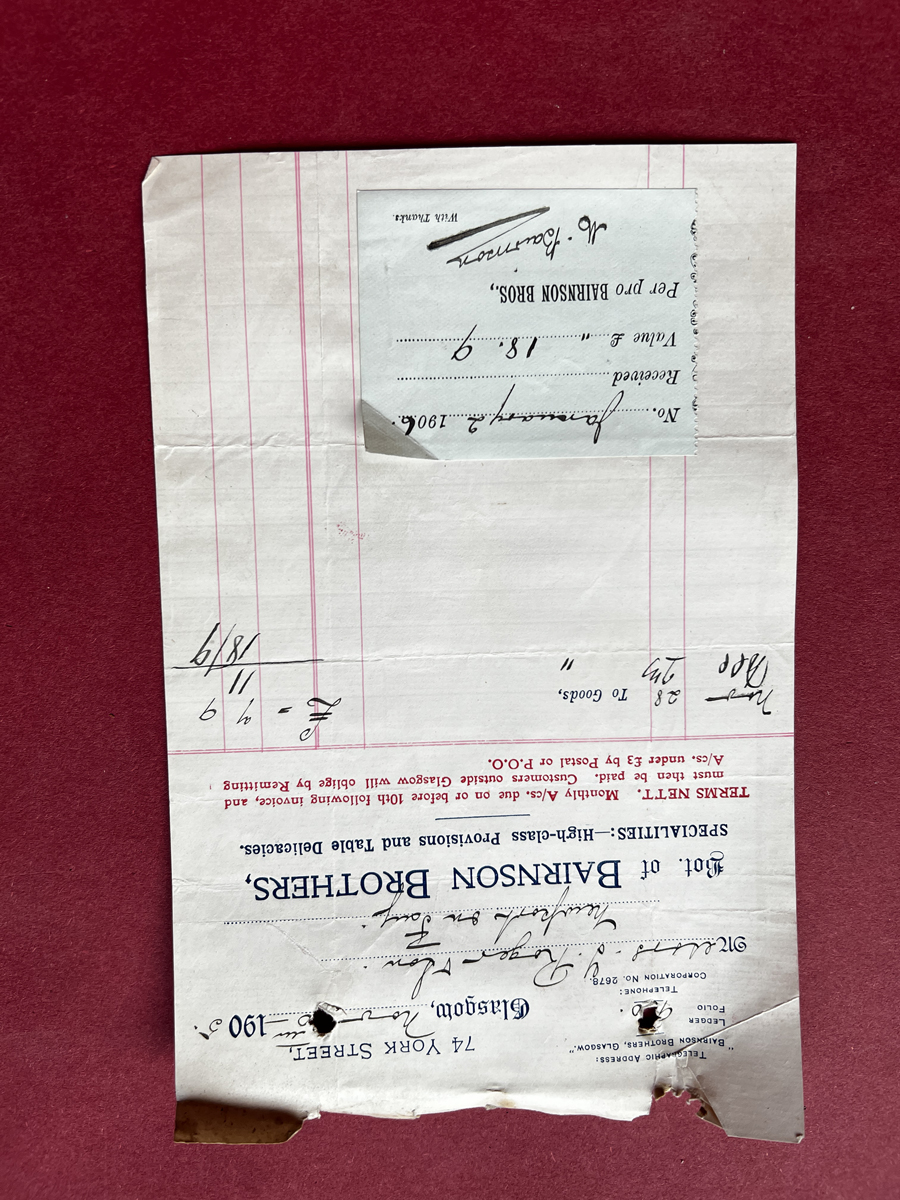 TELEGRAPHIC ADDRESS:
"BAIRNSON BROTHERS, GLASGOW."
LEDGER
FOLIO
TELEPHONE:
CORPORATION No. 2678.
74 YORK STREET,
Glasgow, Nov 1905.
Messrs. Y. Roger & Son
Newport on Tay
Bot. of BAIRNSON BROTHERS,
SPECIALITIES:—High-class Provisions and Table Delicacies.
TERMS NETT. Monthly A/cs. due on or before 10th following invoice, and
must then be paid. Customers outside Glasgow will oblige by Remitting
A/cs. under £3 by Postal or P.O.O.
Nov 28 To Goods, £ = 7 9
Dec " 11
18/9
No. January 2 1906.
Received
Value £ " 18. 9
Per pro BAIRNSON BROS.,
Bairnson
With Thanks.